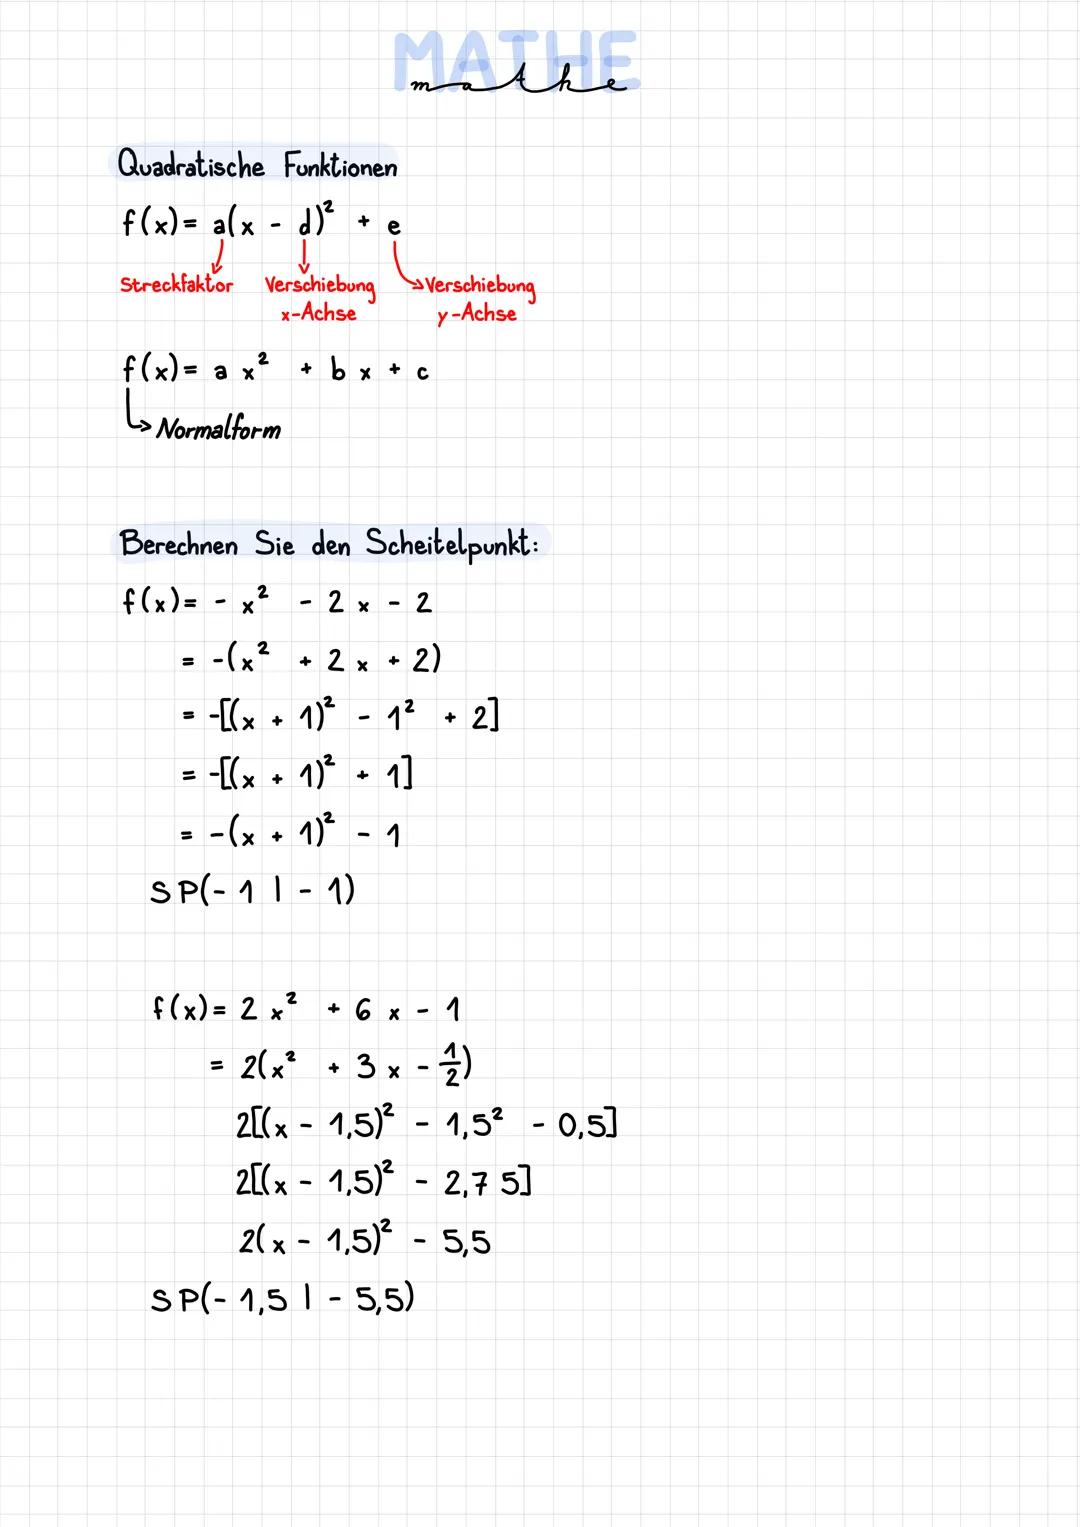 MATHE
mathe
Quadratische Funktionen
f(x)= a(x - d)² + e
Streckfaktor Verschiebung x-Achse Verschiebung y-Achse
f(x)= a x² + b x + c
Normalform
Berechnen Sie den Scheitelpunkt:
f(x)= - x² - 2 x - 2
= -(x² + 2 x + 2)
= -[(x + 1)² - 1² + 2]
= -[(x + 1)² + 1]
= -(x + 1)² - 1
SP(- 1 | - 1)
f(x)= 2 x² + 6 x - 1
= 2(x² + 3 x - 1/2)
2[(x - 1,5)² - 1,5² - 0,5]
2[(x - 1,5)² - 2,7 5]
2(x - 1,5)² - 5,5
SP(- 1,5 | - 5,5)